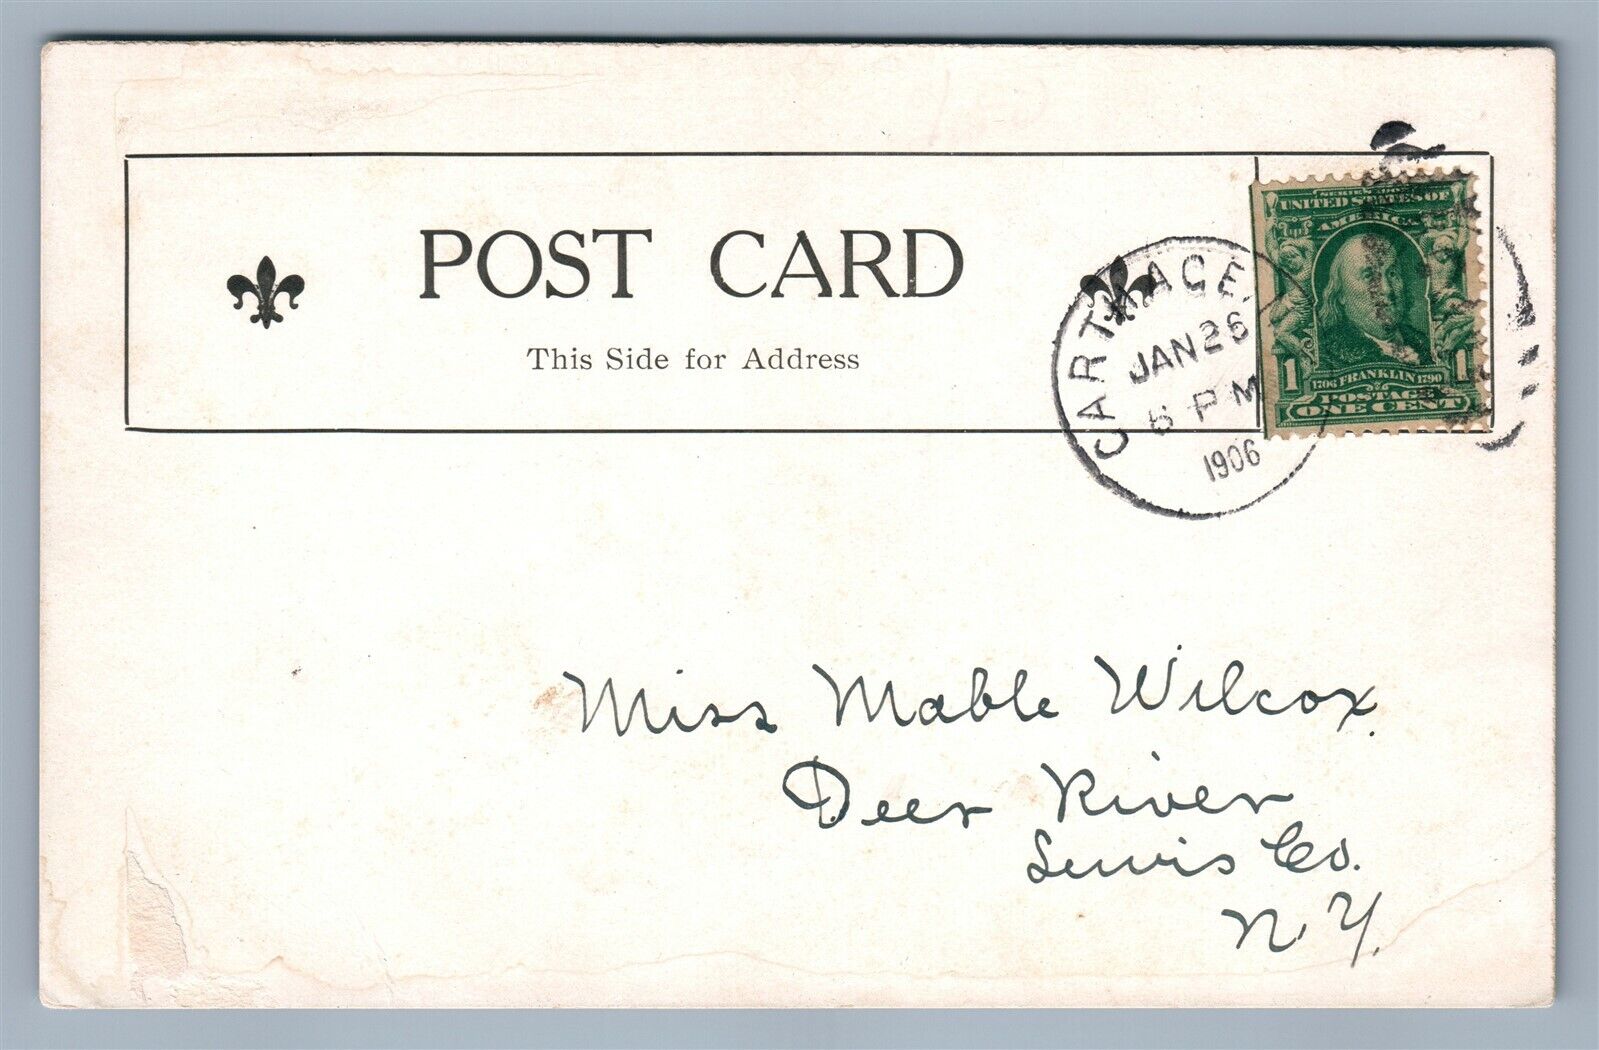 POST CARD
This Side for Address
CARTHAGE,
JAN 26
6 PM
1906
SERIES 1902
UNITED STATES OF
AMERICA
1 1706 FRANKLIN 1790 1
POSTAGE
ONE CENT
Miss Mable Wilcox.
Deer River
Lewis Co.
N.Y.